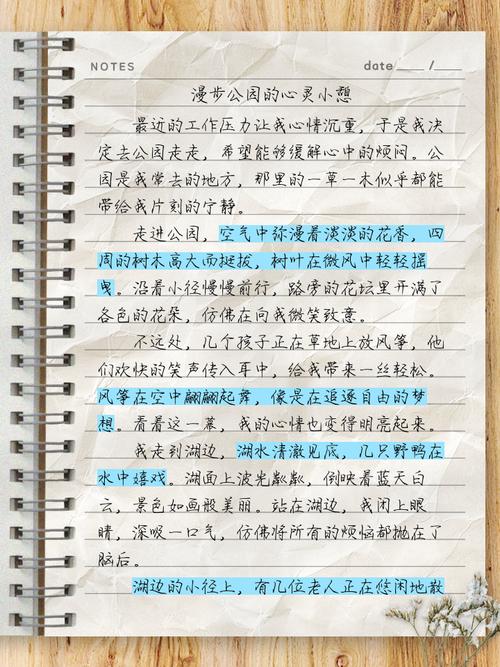 NOTES date ___ / ___
漫步公园的心灵小憩
最近的工作压力让我心情沉重，于是我决
定去公园走走，希望能够缓解心中的烦闷。公
园是我常去的地方，那里的一草一木似乎都能
带给我片刻的宁静。
走进公园，空气中弥漫着淡淡的花香，四
周的树木高大而挺拔，树叶在微风中轻轻摇
曳。沿着小径慢慢前行，路旁的花坛里开满了
各色的花朵，仿佛在向我微笑致意。
不远处，几个孩子正在草地上放风筝，他
们欢快的笑声传入耳中，给我带来一丝轻松。
风筝在空中翩翩起舞，像是在追逐自由的梦
想。看着这一幕，我的心情也变得明亮起来。
我走到湖边，湖水清澈见底，几只野鸭在
水中嬉戏。湖面上波光粼粼，倒映着蓝天白
云，景色如画般美丽。站在湖边，我闭上眼
睛，深吸一口气，仿佛将所有的烦恼都抛在了
脑后。
湖边的小径上，有几位老人正在悠闲地散